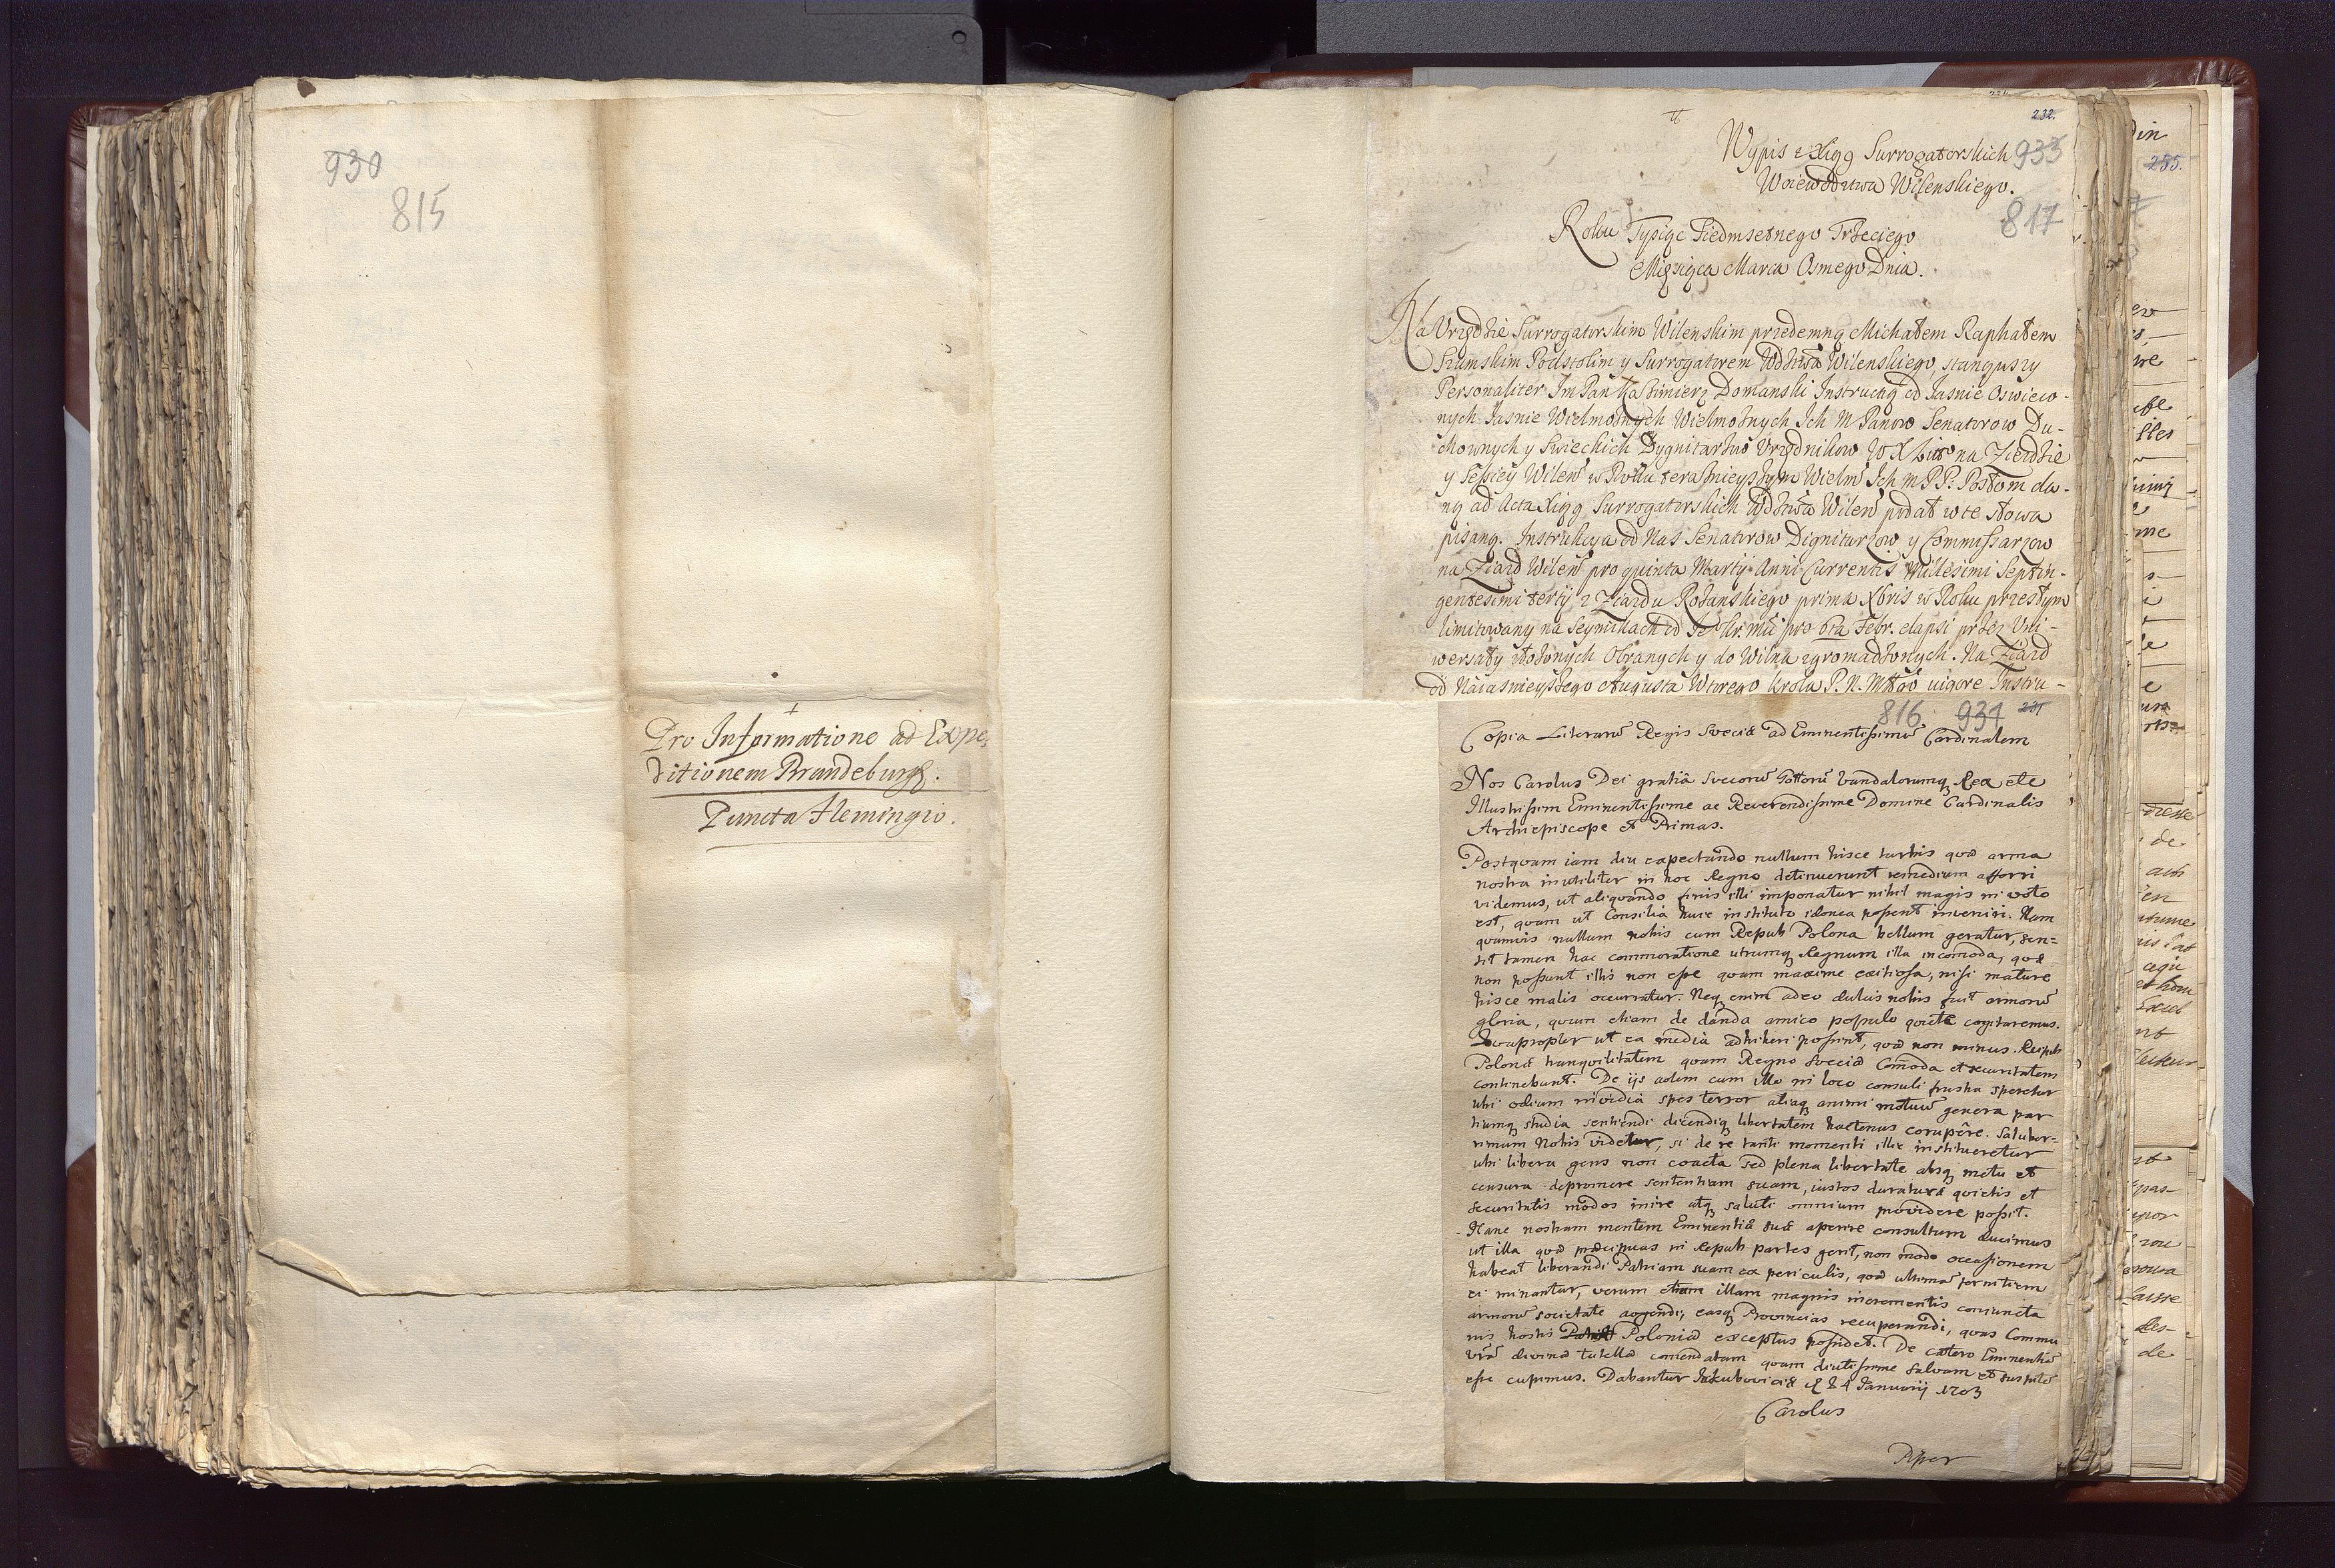 930
815
Pro Informatione ad Expe-
ditionem Brandeburg.
Puncta Flemingio.
232.
Wypis z Xiąg Surrogatorskich 933
Woiewodztwa Wilenskiego.
817
Roku Tysiąc Siedmsetnego Trzeciego
Miesiąca Marca Osmego Dnia.
Na Vrzędzie Surrogatorskim Wilenskim przedemną Michałem Raphałem
Szumskim Podstolim y Surrogatorem Wdztwa Wilenskiego, stanąwszy
Personaliter Im Pan Kazimierz Domanski Instructią od Jasnie Oswieco-
nych Jasnie Wielmożnych Wielmożnych Ich M Panow Senatorow Du-
chownych y Swieckich Dygnitarzow Vrzędnikow W X Litt na Zieździe
y Sessiey Wilen w Roku teraznieyszym Wielm Ich m P P: Posłom da-
ną ad Acta Xiąg Surrogatorskich Wdztwa Wilen podał w te słowa
pisaną. Instrukcya od Nas Senatorow Dignitarzow y Commissarzow
na Ziazd Wilen pro quinta Martij Anni Currentis Millesimi Septin-
gentesimi tertij z Ziazdu Rożanskiego prima Xbris w Roku przeszłym
limitowany na Seymikach od Je° Kr. Mći pro 6ta Febr. elapsi przez Vni-
wersały złożonych Obranych y do Wilna zgromadzonych. Na Ziazd
od Naiasnieyszego Augusta Wtorego Krola P. N. Młgo vigore Instru-
816 934 231
Copia Literarũ Regis Sveciæ ad Eminentissimũ Cardinalem
Nos Carolus Dei gratiâ Svecorũ Gottorũ Vandalorumq Rex etc
Illustrissim Eminentissime ac Reverendissime Domine Cardinalis
Archiepiscope et Primas.
Postqvam iam diu expectando nullum hisce turbis qvæ arma
nostra inutiliter in hoc Regno detinuerunt remedium afferri
videmus, ut aliqvando finis illi imponatur nihil magis in voto
est, qvam ut Consilia huic instituto idonea possent inveniri. Nam
qvamvis nullum nobis cum Repub Polona bellum geratur, sen=
tit tamen hac commoratione utrumq Regnum illa incomoda, qvæ
non possunt illis non esse qvam maxime exitiosa, nisi mature
hisce malis occurratur. Neq enim adeo dulcis nobis fuit armorũ
gloria, qvum etiam de danda amico populo qviete cogitaremus.
Qvapropter ut ea media adhiberi possint, qvæ non minus Reipub
Polonæ tranqvilitatem qvam Regno Sveciæ Comoda et securitatem
continebunt. De ijs autem cum illo in loco consuli frustra speretur
ubi odium invidia spes terror aliaq animi motuũ genera par
tiumq studia sentiendi dicendiq libertatem hactenus corupêre. Saluber=
rimum Nobis videtur, si de re tanti momenti illic institueretur
ubi libera gens non coacta sed plena libertate absq metu et
censura depromere sententiam suam, iustos duraturæ qvietis et
securitatis modos inire atq saluti omnium providere possit.
Hanc nostram mentem Eminentiæ suæ aperire consultum ducimus
ut illa qvæ præcipuas in Repub partes gerit, non modo occasionem
habeat liberandi Patriam suam ex periculis, qvæ ultimã pernitiem
ei minantur, verum etiam illam magnis incrementis coniuncta
armorũ societate augendi, easq Provincias recuperandi, qvas Commu
nis hostis Poloniæ exceptus possidet. De cætero Eminentiã
Vrã divinæ tutellæ comendatam qvam diutissime salvam et sospitẽ
esse cupimus. Dabantur Jakubovicis Januarij 1703
Carolus
Piper
255.